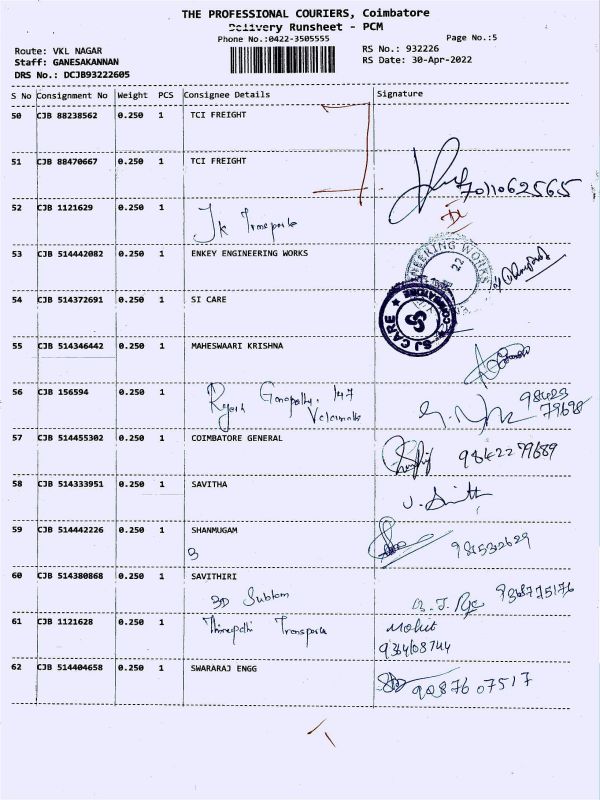 THE PROFESSIONAL COURIERS, Coimbatore
Delivery Runsheet - PCM
Phone No.:0422-3505555
Page No.:5
Route: VKL NAGAR
RS No.: 932226
Staff: GANESAKANNAN
RS Date: 30-Apr-2022
DRS No.: DCJB93222605
S No Consignment No Weight PCS Consignee Details Signature
50 CJB 88238562 0.250 1 TCI FREIGHT
51 CJB 88470667 0.250 1 TCI FREIGHT
7011062565
52 CJB 1121629 0.250 1 Jk Transports
53 CJB 514442082 0.250 1 ENKEY ENGINEERING WORKS
54 CJB 514372691 0.250 1 SI CARE
SJ CARE
55 CJB 514346442 0.250 1 MAHESWAARI KRISHNA
56 CJB 156594 0.250 1 147 98423
79698
57 CJB 514455302 0.250 1 COIMBATORE GENERAL 9842279689
58 CJB 514333951 0.250 1 SAVITHA
59 CJB 514442226 0.250 1 SHANMUGAM
3
60 CJB 514380868 0.250 1 SAVITHIRI
3D
61 CJB 1121628 0.250 1 Thirupathi Transports Mohit
62 CJB 514404658 0.250 1 SWARARAJ ENGG